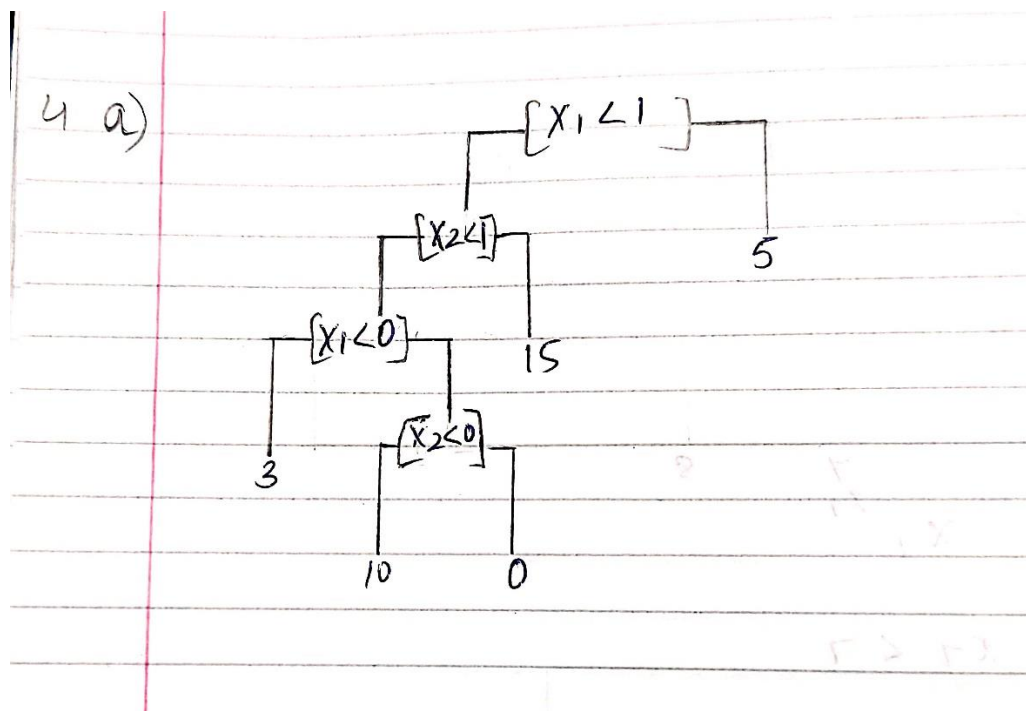 4 a)
[X1 < 1 ]
[X2<1]
5
[X1<0]
15
[X2<0]
3
10 0